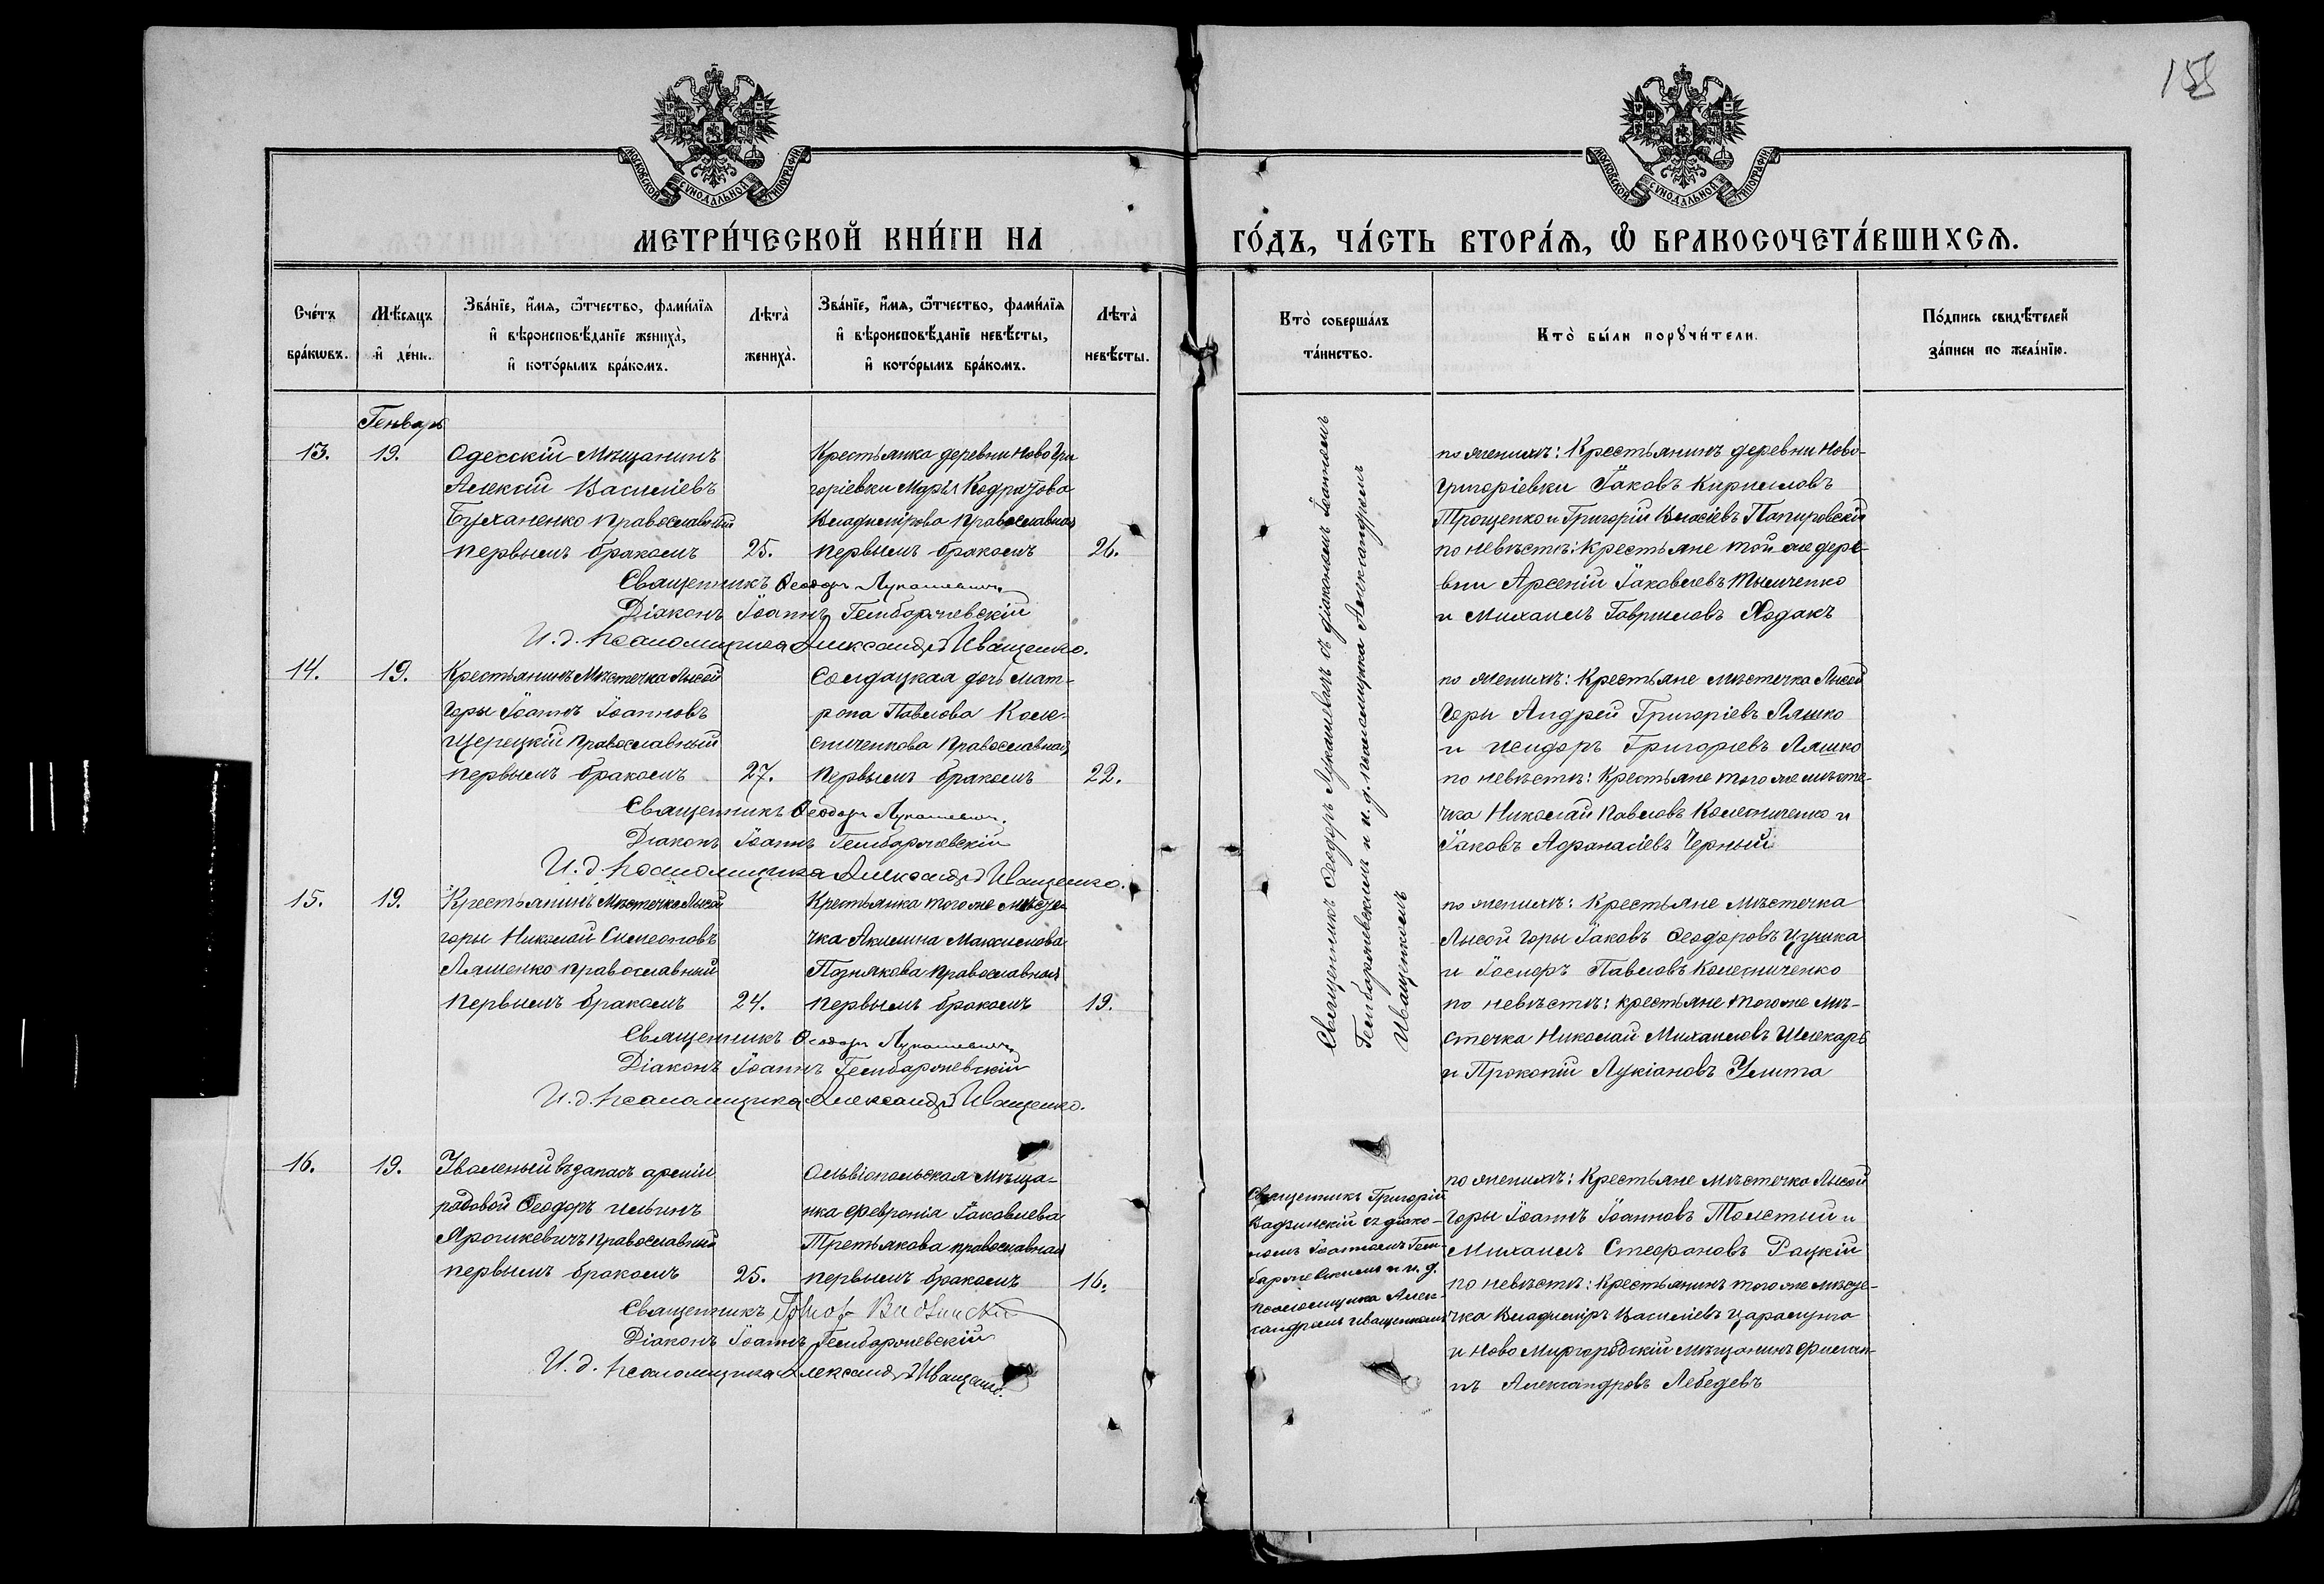 158
МОСКОВСКОЙ СУНОДАЛЬНОЙ ТИПОГРАФІИ
МОСКОВСКОЙ СУНОДАЛЬНОЙ ТИПОГРАФІИ
МЕТРИ́ЧЕСКОЙ КНИ́ГИ НА
ГО́ДЪ, ЧА́СТЬ ВТОРА́Я, Ѡ БРАКОСОЧЕТА́ВШИХСЯ.
Сче́тъ бра́кѡвъ.
Мѣ́сяцъ и҆ де́нь.
Зва́нїе, и҆́мя, ѻ҆́тчество, фами́лїя
и҆ вѣроисповѣ́данїе жениха̀,
и҆ кото́рымъ бра́комъ.
Лѣта̀ жениха̀.
Зва́нїе, и҆́мя, ѻ҆́тчество, фами́лїя
и҆ вѣроисповѣ́данїе невѣ́сты,
и҆ кото́рымъ бра́комъ.
Лѣта̀ невѣ́сты.
Кто̀ соверша́лъ
та́инство.
Кто̀ бы́ли порꙋчи́тели.
По́дпись свидѣ́телей
за́писи по жела́нїю.
Генварь
13. 19.
Одесскій Мѣщанинъ
Алексій Василіевъ
Буханенко православный
первымъ бракомъ 25.
Крестьянка деревни Ново Гри
горіевки Марія Кодратова
Владимірова православная
первымъ бракомъ 26.
Священникъ Ѳеодоръ Лукашевичъ
Діаконъ Іоаннъ Гембаржевскій
И. д. псаломщика Александръ Иващенко.
14. 19.
Крестьянинъ Мѣстечка Лысой
Горы Іоаннъ Іоанновъ
Щерецкій православный
первымъ бракомъ 27.
Солдацкая дочь Мат-
рона Павлова Коле-
сниченкова православная
первымъ бракомъ 22.
Священникъ Ѳеодоръ Лукашевичъ.
Діаконъ Іоаннъ Гембаржевскій
И. д. псаломщика Александръ Иващенко.
15. 19.
Крестьянинъ Мѣстечка Лысой
горы Николай Симеоновъ
Ляшенко православный
первымъ бракомъ 24.
Крестьянка того же мѣсте
чка Акилина Максимова
Познякова православная
первымъ бракомъ 19.
Священникъ Ѳеодоръ Лукашевичъ
Діаконъ Іоаннъ Гембаржевскій
И. д. псаломщика Александръ Иващенко.
16. 19.
Уволеный въ запасъ арміи
рядовой Ѳеодоръ Ильинъ
Ярошкевичъ православный
первымъ бракомъ 25.
Ольвіопольская Мѣща-
нка Февронія Іаковлева
Третьякова православная
первымъ бракомъ 16.
Священникъ
Діаконъ Іоаннъ Гембаржевскій
И. д. псаломщика Александръ Иващенко.
Священникъ Ѳеодоръ Лукашевичъ съ діакономъ Іоанномъ
Гембаржевскимъ и и. д. псаломщика Александромъ
Иващенкомъ
по женихѣ: Крестьянинъ деревни Ново-
Григоріевки Іаковъ Кирилловъ
Трощенко и Григорій Власіевъ Папировскій
по невѣстѣ: Крестьяне той же дере-
вни Арсеній Іаковлевъ Тымченко
и Михаилъ Гавриловъ Ходакъ
по женихѣ: Крестьяне мѣстечка Лысой
Горы Андрей Григоріевъ Ляшко
и Исидоръ Григорьевъ Ляшко
по невѣстѣ: Крестьяне того же мѣсте-
чка Николай Павловъ Колесниченко и
Іаковъ Афанасіевъ Черный
по женихѣ: Крестьяне Мѣстечка
Лысой Горы Іаковъ Ѳеодоровъ Цушка
и Іосифъ Павловъ Колесниченко
по невѣстѣ: крестьяне того же мѣ-
стечка Николай Михаиловъ Шлекарь
и Прокопій Лукіановъ Улита
Священникъ Григорій
Вадзинскій съ діако-
номъ Іоанномъ Гем-
баржевскимъ и и. д.
псаломщика Алек-
сандромъ Иващенкомъ
по женихѣ: Крестьяне мѣстечка Лысой
Горы Іоаннъ Іоанновъ Толстый и
Михаилъ Стефановъ Рацкій
по невѣстѣ: Крестьянинъ того же мѣсте-
чка Владиміръ Василіевъ Царалунга
и Ново Миргородскій мѣщанинъ
Александровъ Лебедевъ